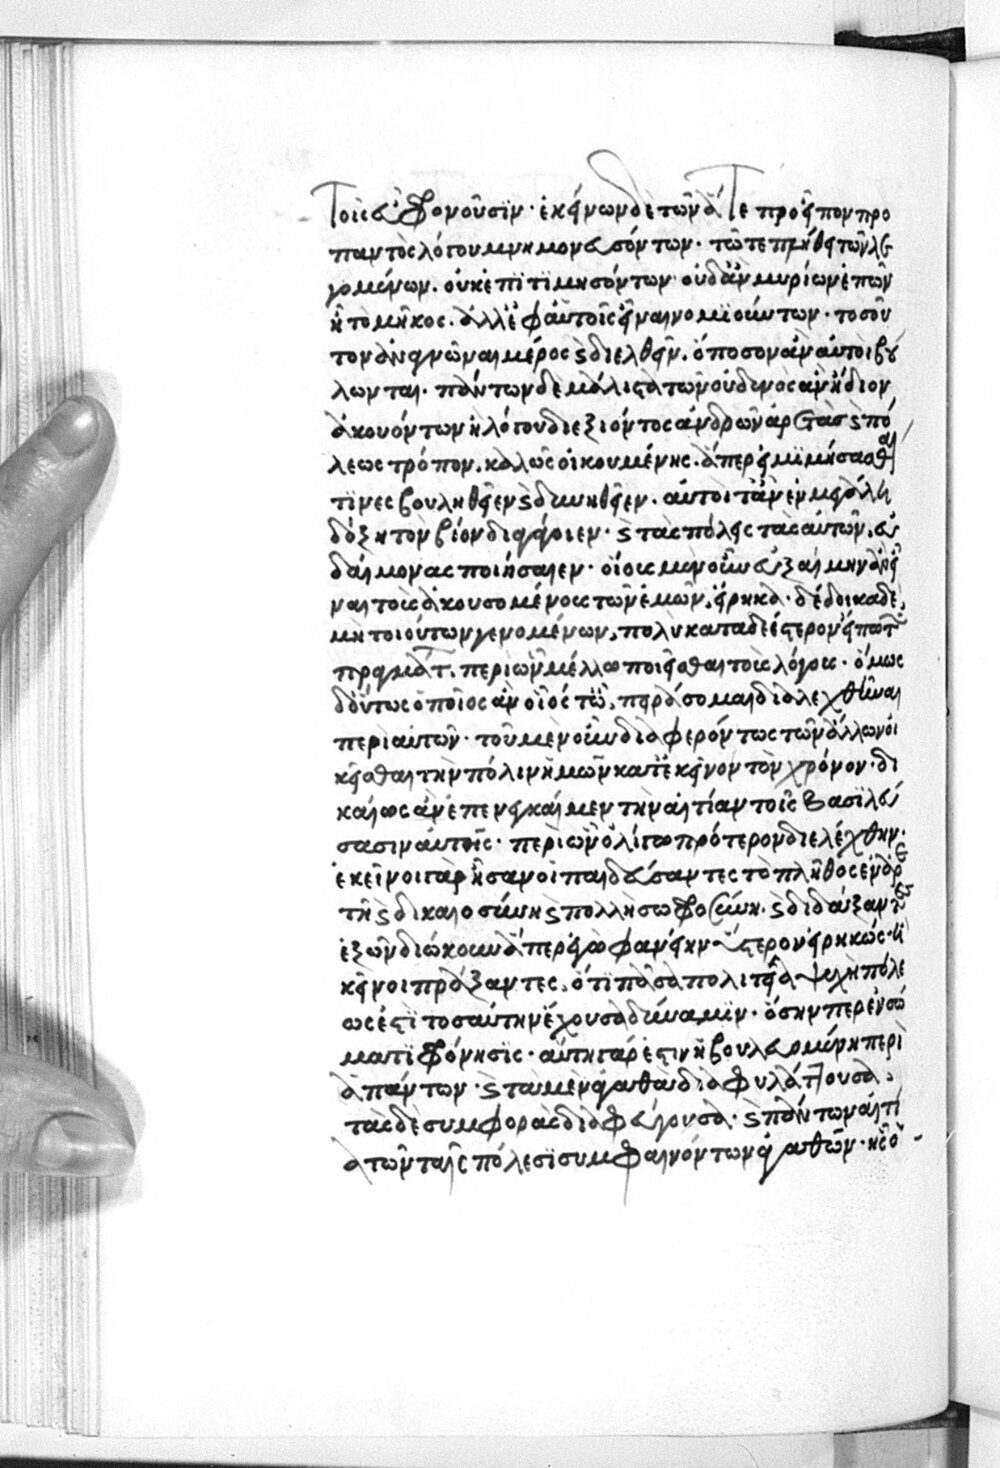 τοῖς εὖ φρονοῦσϊν· ἐκείνων δὲ τῶν ἅ τε προεῖπον προ
παντὸς λόγου μνημονευσόντων· τῶ τε πλήθει τῶν λε
γομένων. οὐκ ἐπϊτϊμησόντων· οὐδ' ἂν μυρίων ἐπῶν
ἦ τὸ μῆκος. ἀλλ' ἐφ' αὑτοῖς εἶναι νομϊούντων· τοσοῦ
τον ἀναγνῶναι μέρος καὶ διελθεῖν. ὁπόσον ἂν αὐτοὶ βού
λωνται· πάντων δὲ μάλιστα τῶν οὐδενὸς ἂν ἥδιον
ἀκουόντων ἢ λόγου διεξιόντος ἀνδρῶν ἀρετὰς καὶ πό
λεως τρόπον. καλῶς οἰκουμένης. ἅπερ εἰ μϊμήσασθαι
τϊνες βουληθεῖεν καὶ δυνηθεῖεν. αὐτοί τ' ἂν ἐν μεγάλη
δόξη τὸν βίον διαγάγοιεν· καὶ τὰς πόλεις τὰς αὑτῶν, εὐ
δαίμονας ποιήσαιεν· οἵους μὲν οὖν εὐξαίμην ἂν εἶ
ναι τοὺς ἀκουσομένους τῶν ἐμῶν, εἴρηκα· δέδοικα δὲ,
μὴ τοιούτων γενομένων, πολὺ καταδεέστερον εἴπω τῶν
πραγμάτων. περὶ ὧν μέλλω ποιεῖσθαι τοὺς λόγους· ὅμως
δ' οὕτως ὁποῖος ἂν οἷός τ' ὦ, πειράσομαι διαλεχθῆναι
περὶ αὐτῶν· τοῦ μὲν οὖν διαφερόντως τῶν ἄλλων οἰ
κεῖσθαι τὴν πόλιν ἡμῶν κατ' ἐκεῖνον τὸν χρόνον· δι
καίως ἂν ἐπενεγκαίμεν τὴν αἰτίαν τοῖς βασϊλεύ
σασιν αὐτοῖς· περὶ ὧν ὀλίγω πρότερον διελέχθην·
ἐκεῖνοι γὰρ ἦσαν οἱ παιδεύσαντες τὸ πλῆθος ἐν ἀρε
τῆ καὶ δικαιοσύνη καὶ πολλῆ σωφροσύνη. καὶ διδάξαντες
ἐξ ὧν διώκουν ἅπερ ἐγὼ φανείην ὕστερον εἰρηκώς· ἢ
κεῖνοι πράξαντες, ὅτϊ πᾶσα πολιτεία ψυχὴ πόλε
ώς ἐστϊ τοσαύτην ἔχουσα δύναμϊν· ὅσην περ ἐν σώ
ματϊ φρόνησϊς· αὕτη γάρ ἐστιν ἡ βουλευομένη περὶ
ἁπάντων· καὶ τὰ μὲν ἀγαθὰ διαφυλάττουσα,
τὰς δὲ συμφορὰς διαφεύγουσα· καὶ πάντων αἰτί
α τῶν ταῖς πόλεσϊ συμβαινόντων ἀγαθῶν·